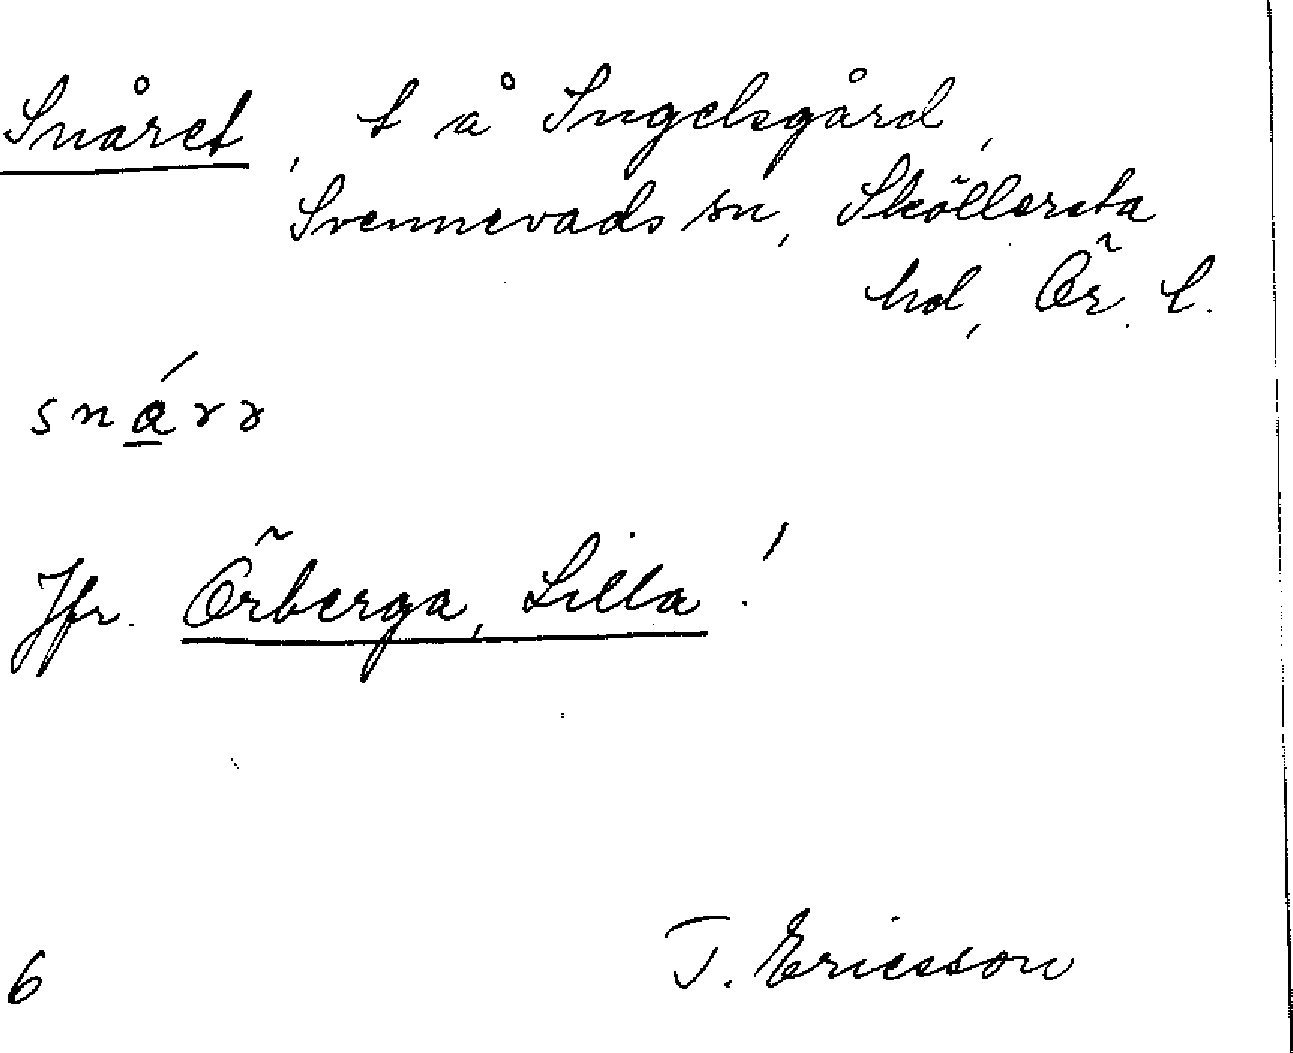 Snåret, t å Ingelsgård,
Svennevads sn, Sköllersta
hd, Ör. l.
snárə
Jfr. Örberga, Lilla!
6 T. Ericsson